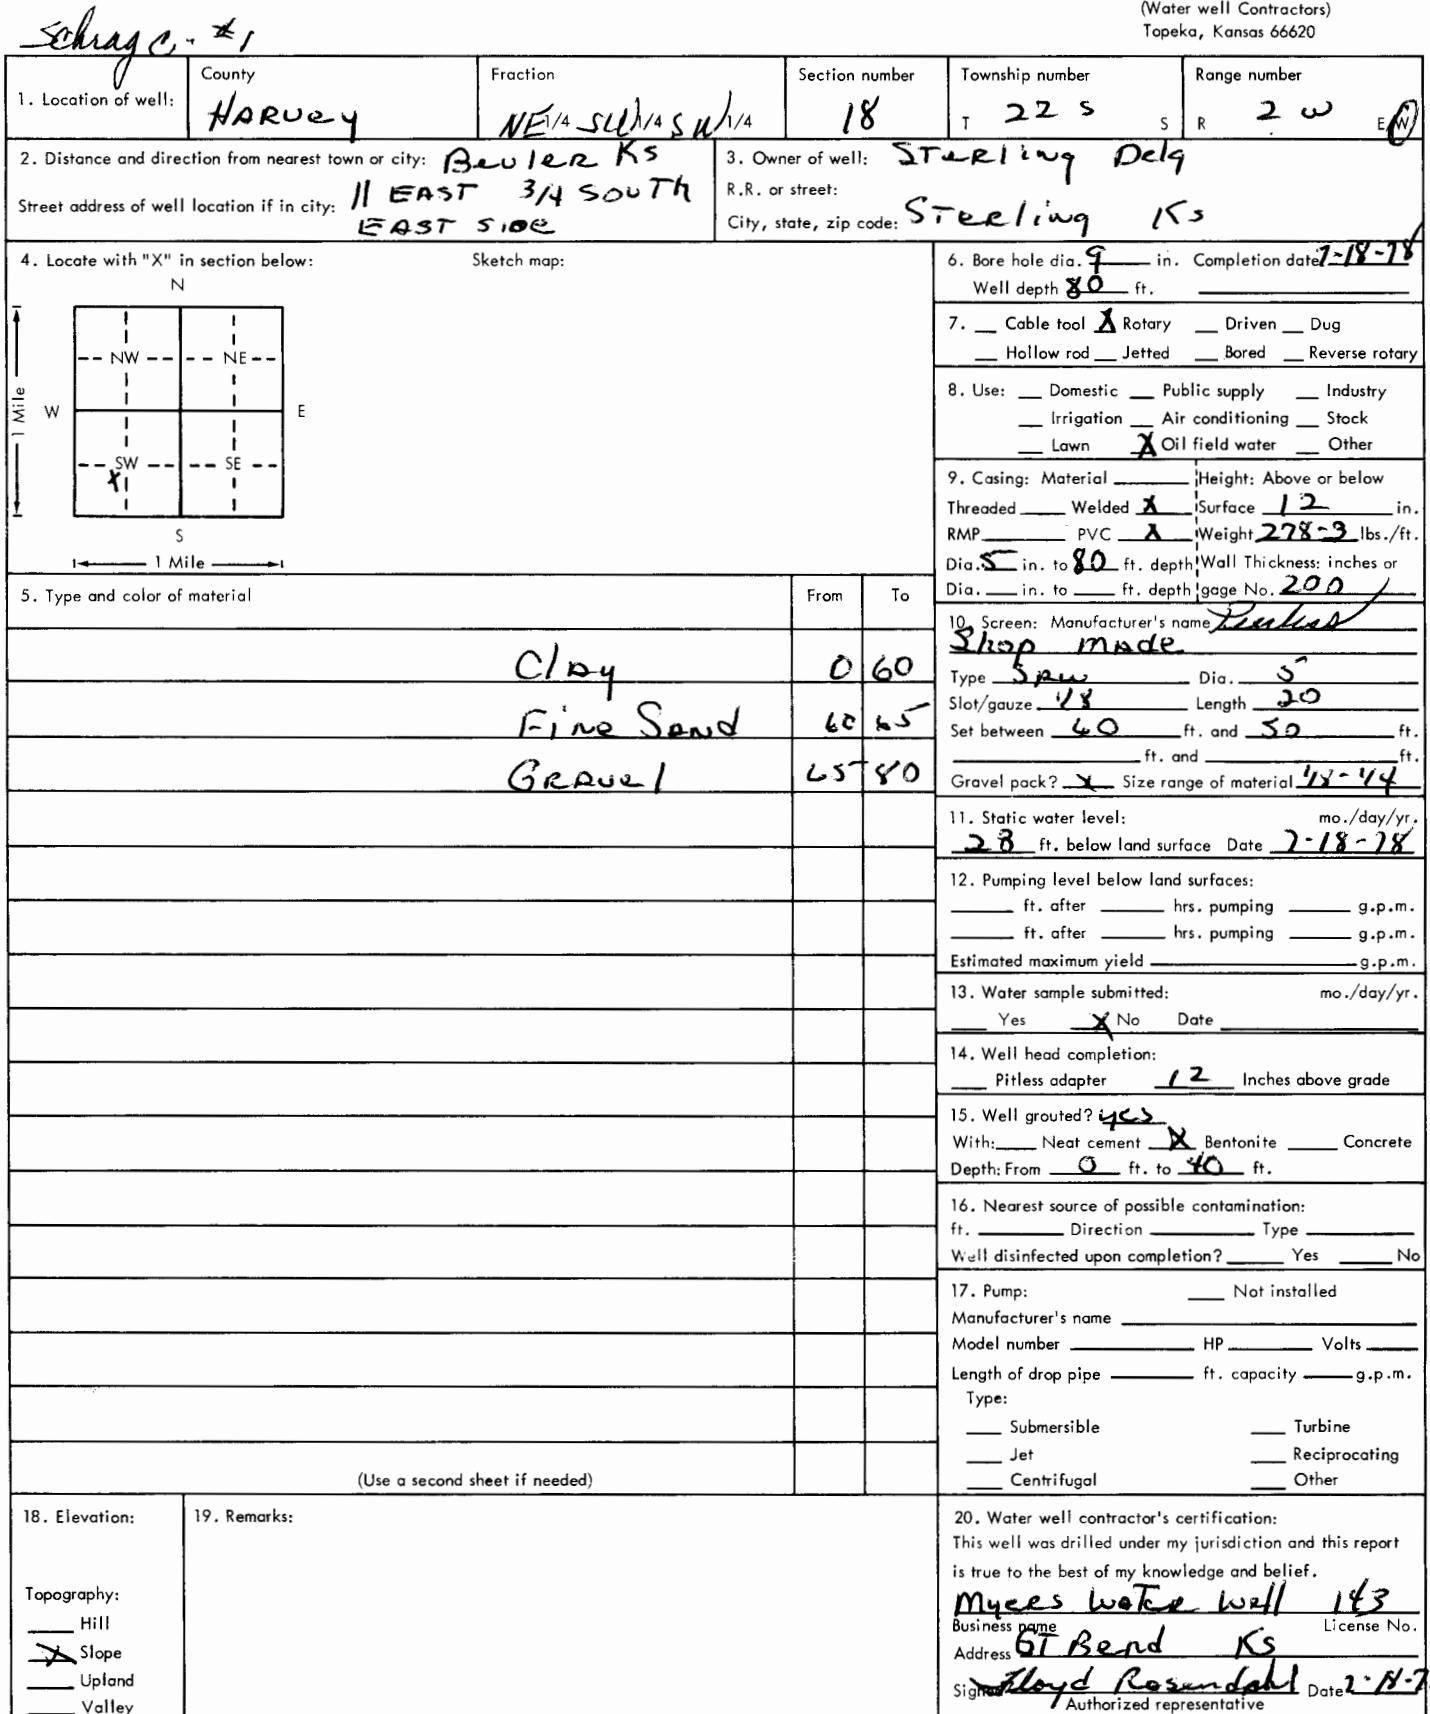 (Water well Contractors)
Topeka, Kansas 66620
Schrag C. #1
1. Location of well: County HARVEY Fraction NE 1/4 SW 1/4 SW 1/4 Section number 18 Township number T 22 S S Range number R 2 W E W
2. Distance and direction from nearest town or city: Beuler Ks
11 EAST 3/4 SOUTH
Street address of well location if in city:
EAST SIDE
3. Owner of well: Sterling Delg
R.R. or street:
City, state, zip code: Sterling Ks
4. Locate with "X" in section below: Sketch map:
N
NW NE
W E
1 Mile
SW SE
X
S
1 Mile
5. Type and color of material From To
Clay 0 60
Fine Sand 60 65
Gravel 65 80
(Use a second sheet if needed)
6. Bore hole dia. 9 in. Completion date 7-18-78
Well depth 80 ft.
7. Cable tool X Rotary Driven Dug
Hollow rod Jetted Bored Reverse rotary
8. Use: Domestic Public supply Industry
Irrigation Air conditioning Stock
Lawn X Oil field water Other
9. Casing: Material Height: Above or below
Threaded Welded X Surface 12 in.
RMP PVC X Weight 278-3 lbs./ft.
Dia. 5 in. to 80 ft. depth Wall Thickness: inches or
Dia. in. to ft. depth gage No. 200
10. Screen: Manufacturer's name
Shop made
Type Saw Dia. 5
Slot/gauze 1/8 Length 20
Set between 60 ft. and 50 ft.
ft. and ft.
Gravel pack? X Size range of material 1/8-1/4
11. Static water level: mo./day/yr.
28 ft. below land surface Date 7-18-78
12. Pumping level below land surfaces:
ft. after hrs. pumping g.p.m.
ft. after hrs. pumping g.p.m.
Estimated maximum yield g.p.m.
13. Water sample submitted: mo./day/yr.
Yes X No Date
14. Well head completion:
Pitless adapter 12 Inches above grade
15. Well grouted? yes
With: Neat cement X Bentonite Concrete
Depth: From 0 ft. to 40 ft.
16. Nearest source of possible contamination:
ft. Direction Type
Well disinfected upon completion? Yes No
17. Pump: Not installed
Manufacturer's name
Model number HP Volts
Length of drop pipe ft. capacity g.p.m.
Type:
Submersible Turbine
Jet Reciprocating
Centrifugal Other
18. Elevation:
Topography:
Hill
X Slope
Upland
Valley
19. Remarks:
20. Water well contractor's certification:
This well was drilled under my jurisdiction and this report
is true to the best of my knowledge and belief.
Myers Water Well 143
Business name License No.
Address GT Bend Ks
Signed Floyd Rosendahl Date
Authorized representative